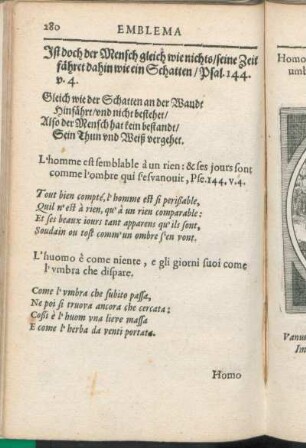 280 EMBLEMA
Ist doch der Mensch gleich wie nichts/seine Zeit
fähret dahin wie ein Schatten / Psal. 144.
v. 4.
Gleich wie der Schatten an der Wandt
Hinfährt/vnd nicht bestehet/
Also der Mensch hat kein bestandt/
Sein Thun vnd Weiß vergehet.
L'homme est semblable à un rien: & ses jours sont
comme l'ombre qui s'esvanouit, Pse. 144, v. 4.
Tout bien compté, l'homme est si perißable,
Quil n'est à rien, qu'à un rien comparable:
Et ses beaux iours tant apparens qu'ils sont,
Soudain ou tost comm'un ombre s'en vont.
L'huomo è come niente, e gli giorni suoi come
l'vmbra che dispare.
Come l'vmbra che subito passa,
Ne poi si truova ancora che cercata;
Coßi è l'huom vna lieve massa
E come l'herba da venti portata.
Homo
Homo
umb
Vanu
Im